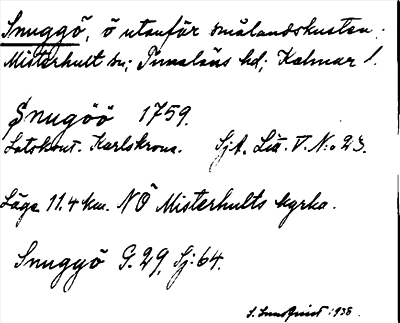 Snuggö, ö utanför smålandskusten.
Misterhult sn; Tunaläns hd; Kalmar l.
Snugöö 1759.
Lotskont. Karlskrona. Sjk. Litt. V. N:o 23.
Läge 11.4 km. NÖ Misterhults kyrka.
Snuggö G. 29, Sj: 64.
S. Lundqvist 1935